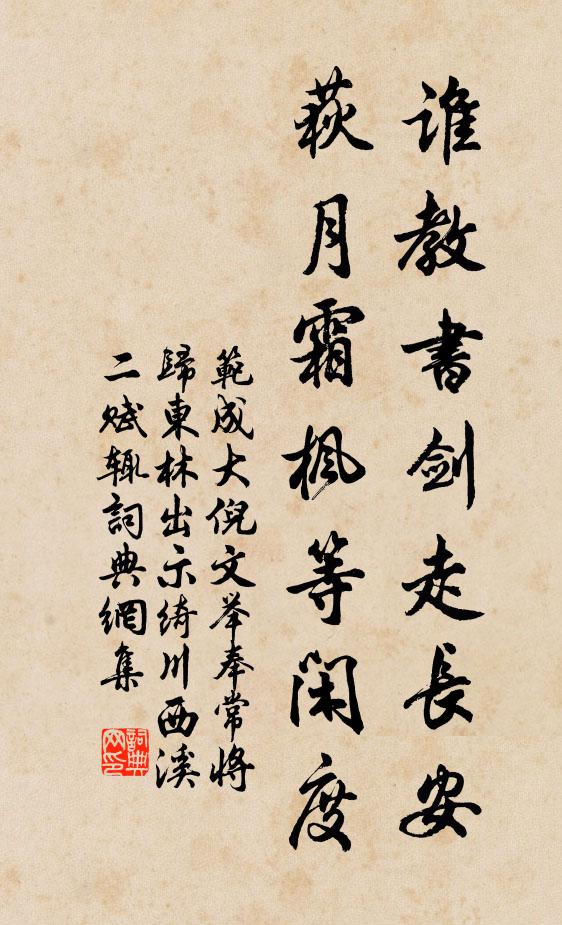 誰教書劍走長安
荻月霜楓等閑度
範成大倪文举奉常將
歸東林出示綺川西溪
二賦輒詞典網集
詞典
网印